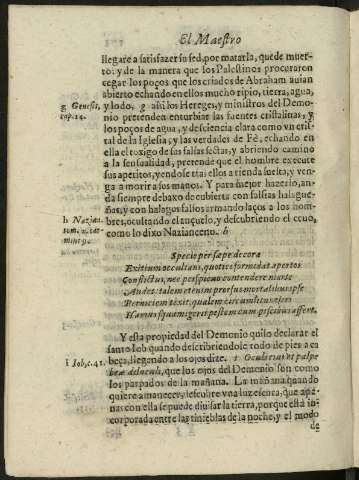 El Maestro
llegare a satisfazer su sed, por matarla, quede muer-
to: y de la manera que los Palestinos procuraron
cegar los poços que los criados de Abraham auian
abierto echando en ellos mucho ripio, tierra, agua,
g Genesis, cap. 24.
y lodo, g assi los Hereges, y ministros del Demo-
nio pretenden enturbiar las fuentes cristalinas, y
los poços de agua, y desciencia clara como vn cris-
tal de la Iglesia, y las verdades de Fè, echando en
ella el toxigo de sus falsas sectas, y abriendo camino
a la sensualidad, pretende que el hombre execute
sus apetitos, y endose tras ellos a rienda suelta, y ven-
ga a morir a sus manos. Y para mejor hazerlo, an-
da siempre debaxo de cubierta con falsas halague-
h Nazian.
ñas, y con halagos falsos armando laços a los hom-
bres, ocultando el ançuelo, y descubriendo el ceuo,
como lo dixo Nazianceno. h
Specie per sæpe decora
Exitium occultans, quotiès formidat apertos
Conflictus, nec perspicuo contendere marte
Audet: talem etenim prorsus mortalibus ipse
Perniciem texit, qualem circumlitus escis
Hamus squamigeri pestem cum piscibus affert.
Y esta propiedad del Demonio quiso declarar el
santo Iob quando describiendole todo de pies a ca
i Iob, c. 41.
beça, llegando a los ojos dize. i Oculi eius vt palpe
bræ deluculi, que los ojos del Demonio son como
los parpados de la mañana. La mañana quando
quiere amanecer, descubre vna luz escura, que ape-
nas con ella se puede diuisar la tierra, porque està in-
corporada entre las tinieblas de noche, y el modo
de